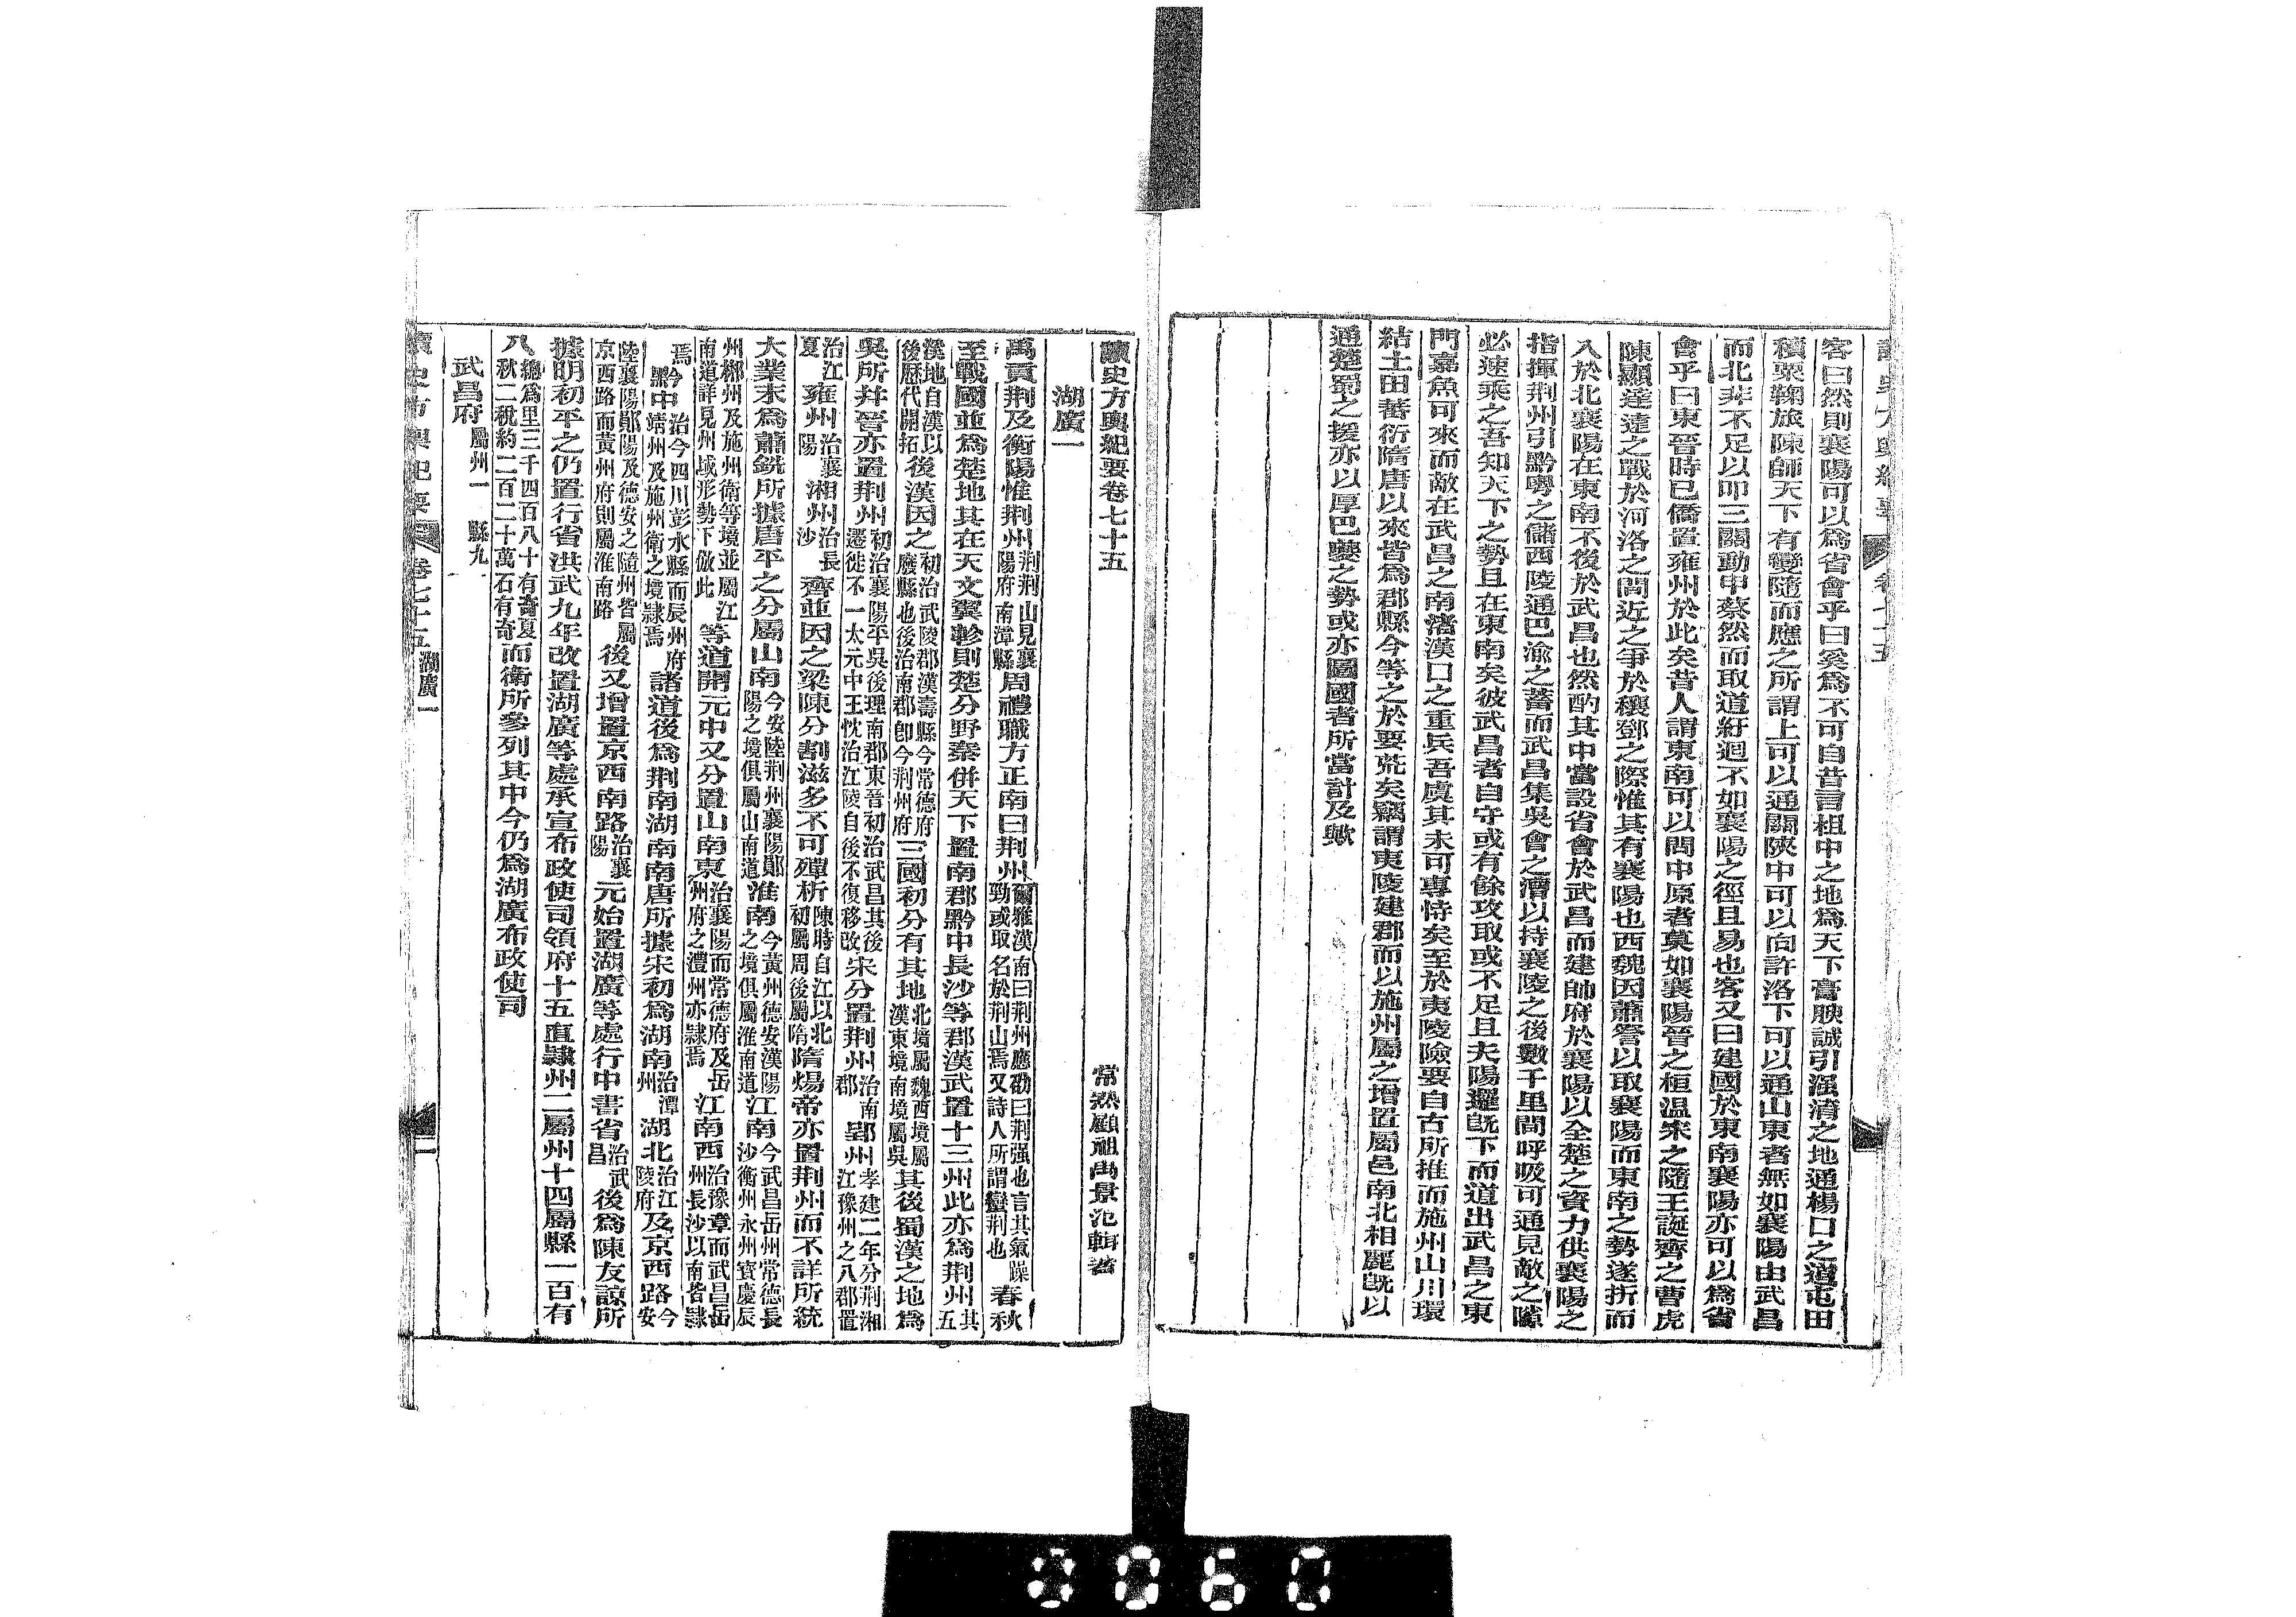 客曰然則襄陽可以爲省會乎曰奚爲不可自昔言柤中之地爲天下膏腴誠引强淯之地通楊口之道屯田
積粟鞠旅陳師天下有變隨而應之所謂上可以通關陝中可以向許洛下可以通山東者無如襄陽由武昌
而北非不足以叩三關動申蔡然而取道紆迴不如襄陽之徑且易也客又曰建國於東南襄陽亦可以爲省
會乎曰東晉時已僑置雍州於此矣昔人謂東南可以問中原者莫如襄陽晉之桓温宋之隨王誕齊之曹虎
陳顯達遠之戰於河洛之閒近之爭於穰鄧之際惟其有襄陽也西魏因蕭詧以取襄陽而東南之勢遂折而
入於北襄陽在東南不後於武昌也然酌其中當設省會於武昌而建帥府於襄陽以全楚之資力供襄陽之
指揮荆州引黔粤之儲西陵通巴渝之蓄而武昌集吳會之漕以持襄陵之後數千里閒呼吸可通見敵之隙
必速乘之吾知天下之勢且在東南矣彼武昌者自守或有餘攻取或不足且夫陽邏旣下而道出武昌之東
門嘉魚可來而敵在武昌之南渚漢口之重兵吾虞其未可專恃矣至於夷陵險要自古所推而施州山川環
結土田蕃衍隋唐以來皆爲郡縣今等之於要荒矣竊謂夷陵建郡而以施州屬之增置屬邑南北相麗旣以
通楚蜀之援亦以厚巴夔之勢或亦圖國者所當計及歟
讀史方輿紀要卷七十五
常熟顧祖禹景范輯著
湖廣一
禹貢荆及衡陽惟荆州荆荆山見襄陽府南漳縣周禮職方正南曰荆州爾雅漢南曰荆州應劭曰荆强也言其氣躁勁或取名於荆山焉又詩人所謂蠻荆也春秋
至戰國並爲楚地其在天文翼軫則楚分野秦併天下置南郡黔中長沙等郡漢武置十三州此亦爲荆州其五
溪地自漢以後歷代開拓後漢因之初治武陵郡漢壽縣今常德府廢縣也後治南郡卽今荆州府三國初分有其地北境屬魏西境屬漢東境南境屬吳其後蜀漢之地爲
吳所并晉亦置荆州初治襄陽平吳後理南郡東晉初治武昌其後遷徙不一太元中王忱治江陵自後不復移改宋分置荆州治南郡郢州孝建二年分荆湘江豫州之八郡置
治江夏雍州治襄陽湘州治長沙齊並因之梁陳分割滋多不可殫析陳時自江以北初屬周後屬隋隋煬帝亦置荆州而不詳所統
大業末爲蕭銑所據唐平之分屬山南今安陸荆州襄陽鄖陽之境俱屬山南道淮南今黃州德安漢陽之境俱屬淮南道江南今武昌岳州常德長沙衡州永州寶慶辰
州郴州及施州衛等境並屬江南道詳見州域形勢下倣此等道開元中又分置山南東治襄陽而常德府及岳州府之澧州亦隸焉江南西治豫章而武昌岳州長沙以南皆隸
焉今黔中治今四川彭水縣而辰州府靖州及施州衛之境隸焉諸道後爲荆南湖南南唐所據宋初爲湖南治潭州湖北治江陵府及京西路今安
陸襄陽鄖陽及德安之隨州皆屬京西路而黃州府則屬淮南路後又增置京西南路治襄陽元始置湖廣等處行中書省治武昌後爲陳友諒所
據明初平之仍置行省洪武九年改置湖廣等處承宣布政使司領府十五直隸州二屬州十四屬縣一百有
八總爲里三千四百八十有奇夏秋二稅約二百二十萬石有奇而衛所參列其中今仍爲湖廣布政使司
武昌府屬州一　縣九
讀史方輿紀要　卷七十五湖廣一　一
0060